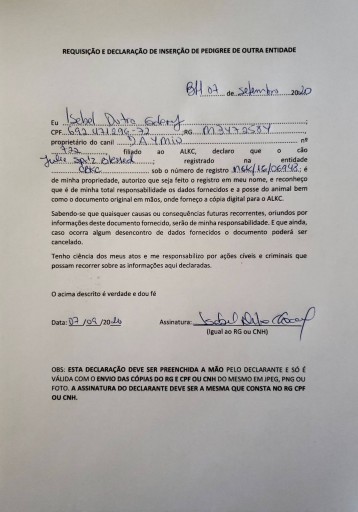 REQUISIÇÃO E DECLARAÇÃO DE INSERÇÃO DE PEDIGREE DE OUTRA ENTIDADE
BH 07 de setembro 2020
Eu Isabel Dutra
CPF RG
proprietário do canil nº
772 filiado ao ALKC, declaro que o cão
Spitz Blessed registrado na entidade
sob o número de registro é
de minha propriedade, autorizo que seja feito o registro em meu nome, e reconheço
que é de minha total responsabilidade os dados fornecidos e a posse do animal bem
como o documento original em mãos, onde forneço a cópia digital para o ALKC.
Sabendo-se que quaisquer causas ou consequências futuras recorrentes, oriundos por
informações deste documento fornecido, serão de minha responsabilidade. E que ainda,
caso ocorra algum desencontro de dados fornecidos o documento poderá ser
cancelado.
Tenho ciência dos meus atos e me responsabilizo por ações cíveis e criminais que
possam recorrer sobre as informações aqui declaradas.
O acima descrito é verdade e dou fé
Data: 07/09/2020 Assinatura:
(Igual ao RG ou CNH)
OBS: ESTA DECLARAÇÃO DEVE SER PREENCHIDA A MÃO PELO DECLARANTE E SÓ É
VÁLIDA COM O ENVIO DAS CÓPIAS DO RG E CPF OU CNH DO MESMO EM JPEG, PNG OU
FOTO. A ASSINATURA DO DECLARANTE DEVE SER A MESMA QUE CONSTA NO RG CPF
OU CNH.